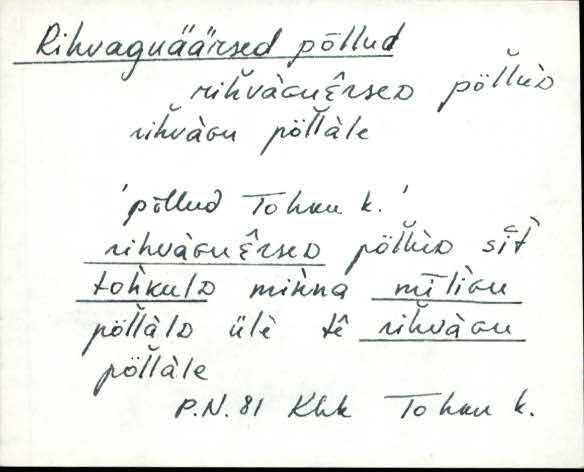 Rihvaguäärsed põllud
rihvàɢuɛ̂rseᴅ pöl̆l̀ùᴅ
rihvàɢu pöl̆l̀àle
'põllud Tohku k.'
rihvàɢuɛ̂rseᴅ pöl̆l̀ùᴅ sît̀
toh̀kulᴅ mih̀na mīlìɢu
pöl̆l̀àlᴅ ülè tê rihvàɢu
pöl̆l̀àle
P.N. 81 Khk Tohku k.